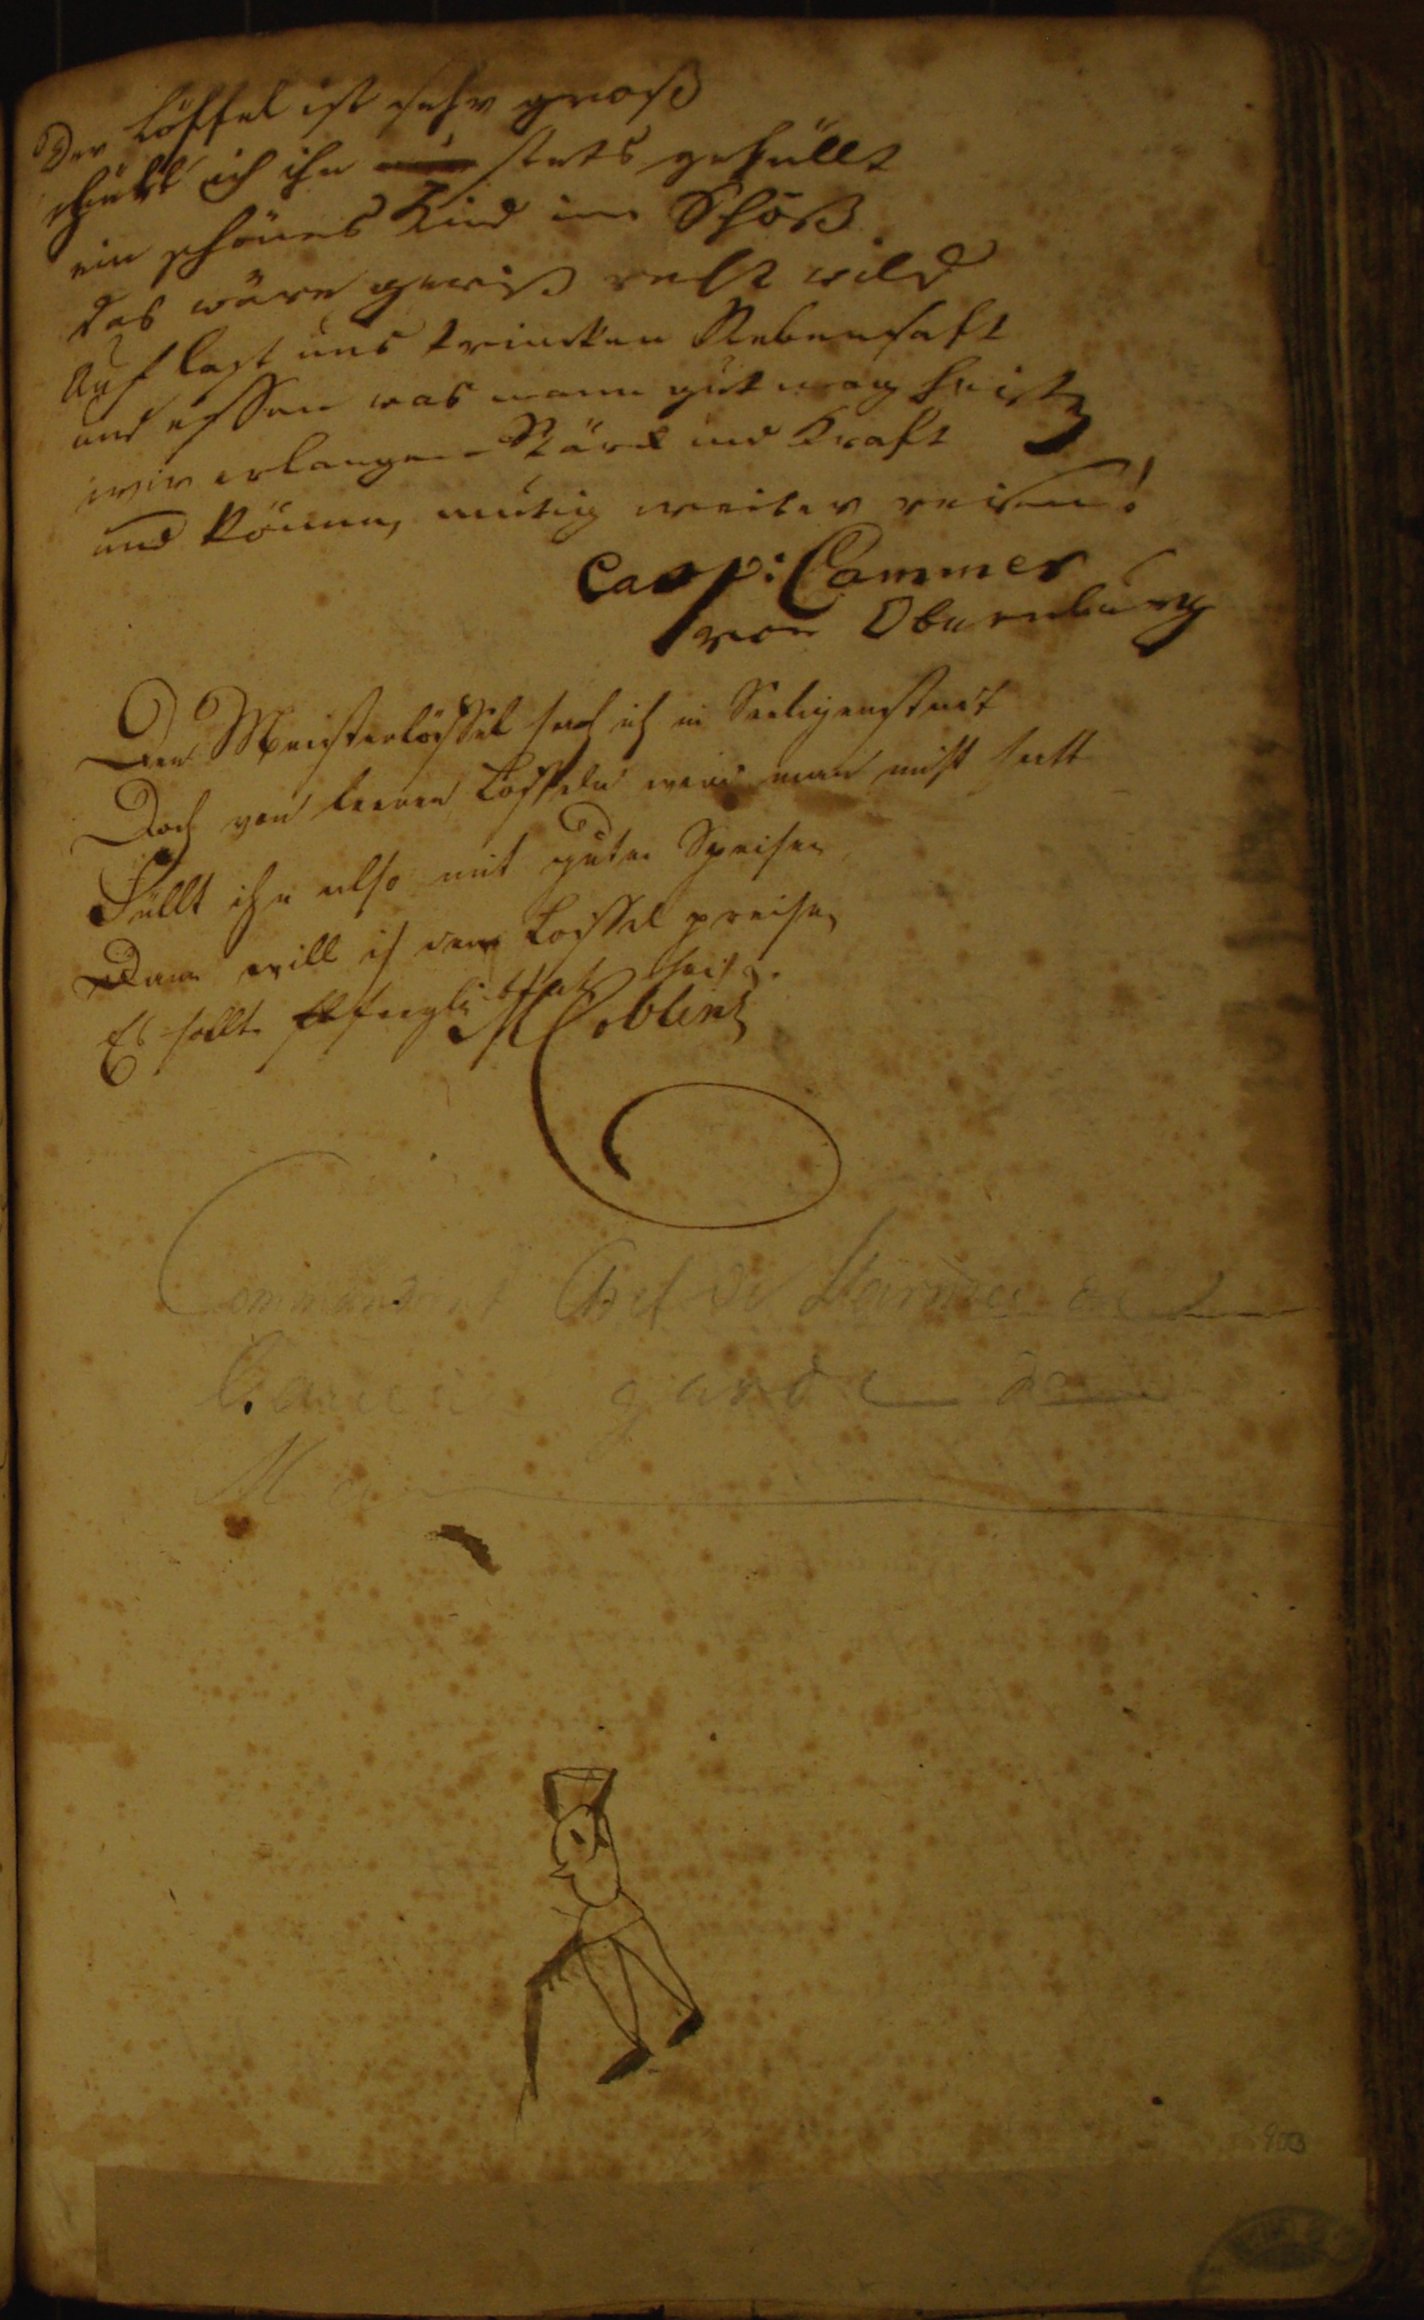 Der Löffel ist sehr groß
ich ihn stets gefüllt
ein schönes Kind im Schoß
das wäre gewiß recht wild
Auf laßt uns trincken Rebensaft
und essen was mann gut mag heist
wir erlangen Stärk und Kraft
und können mutig weiter reisen!
Casp: Cammer
von Obernburg
Den Meisterlöffel sah ich in Seeligenstadt
Doch von leeren Löffeln wird man nicht satt
Füllt ihn also mit guten Speisen
Dann will ich den Löffel preisen
Es sollte
Coblenz
Commandant Chef de
garde
M
903